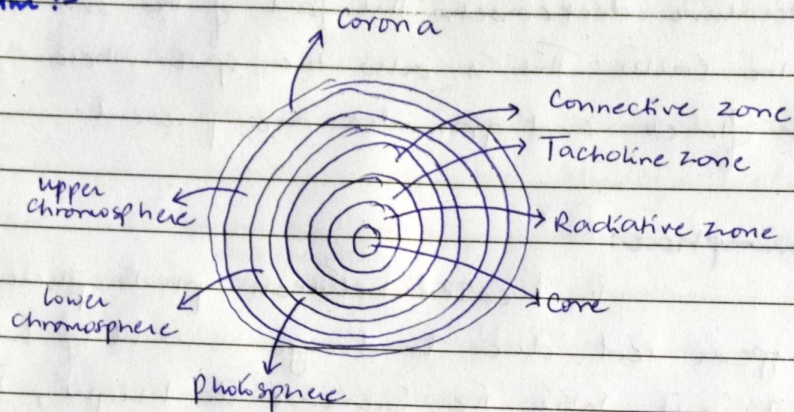 Corona
Connective zone
Tacholine zone
upper
chromosphere
Radiative zone
lower
chromosphere
Core
Photosphere